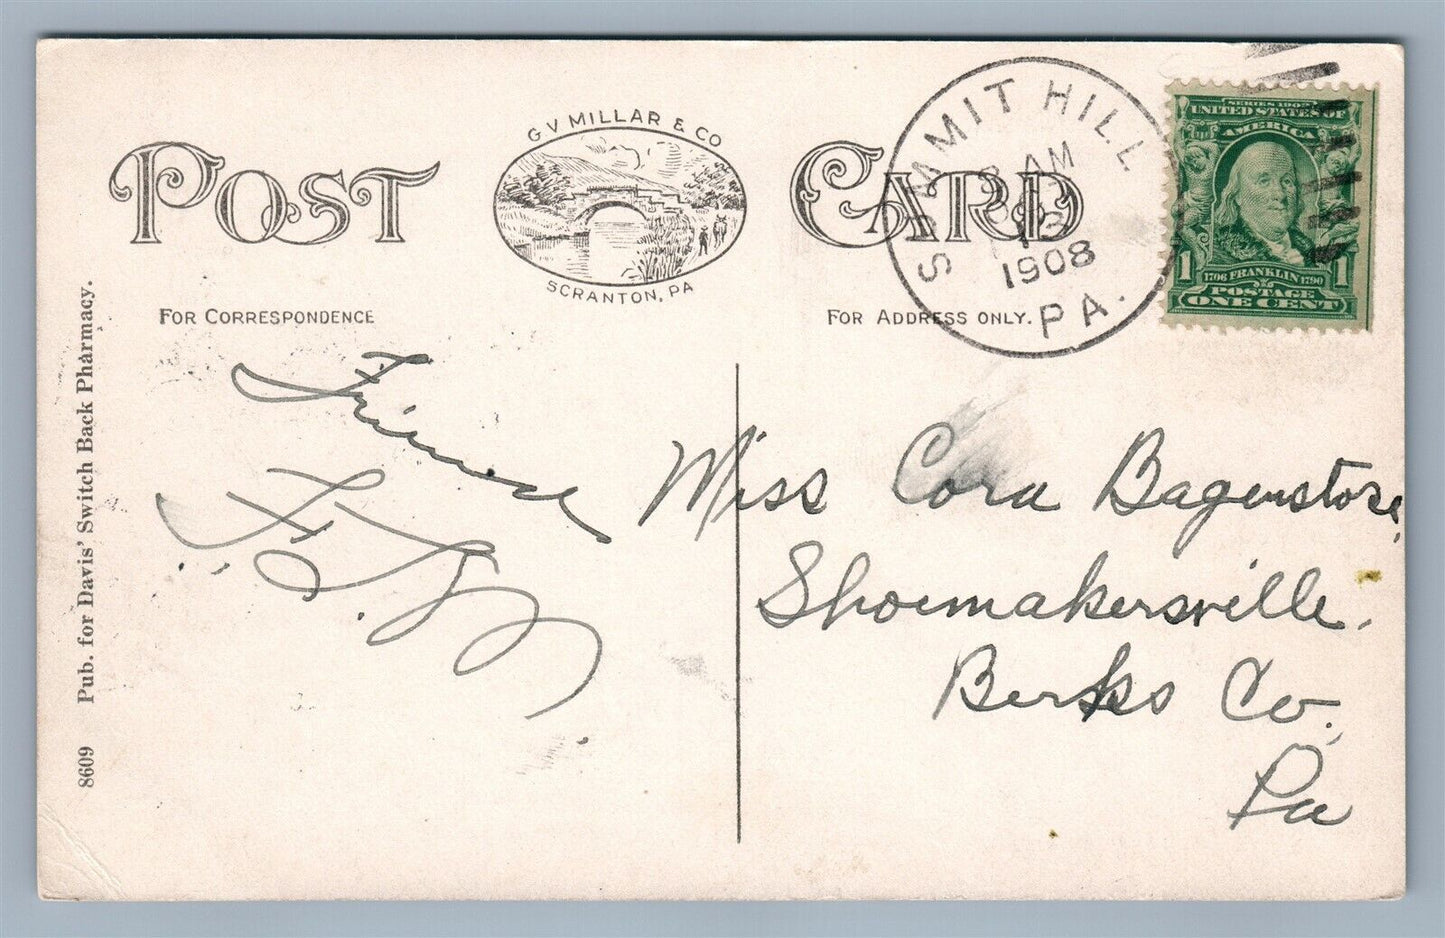 POST CARD
G V MILLAR & CO
SCRANTON, PA
FOR CORRESPONDENCE
FOR ADDRESS ONLY.
SUMMIT HILL
AM
1908
PA.
SERIES 1902
UNITED STATES OF
AMERICA
1706 FRANKLIN 1790
POSTAGE
1 ONE CENT 1
8609 Pub. for Davis' Switch Back Pharmacy.
Miss Cora Bagenstose,
Shoemakersville.
Berks Co.,
Pa